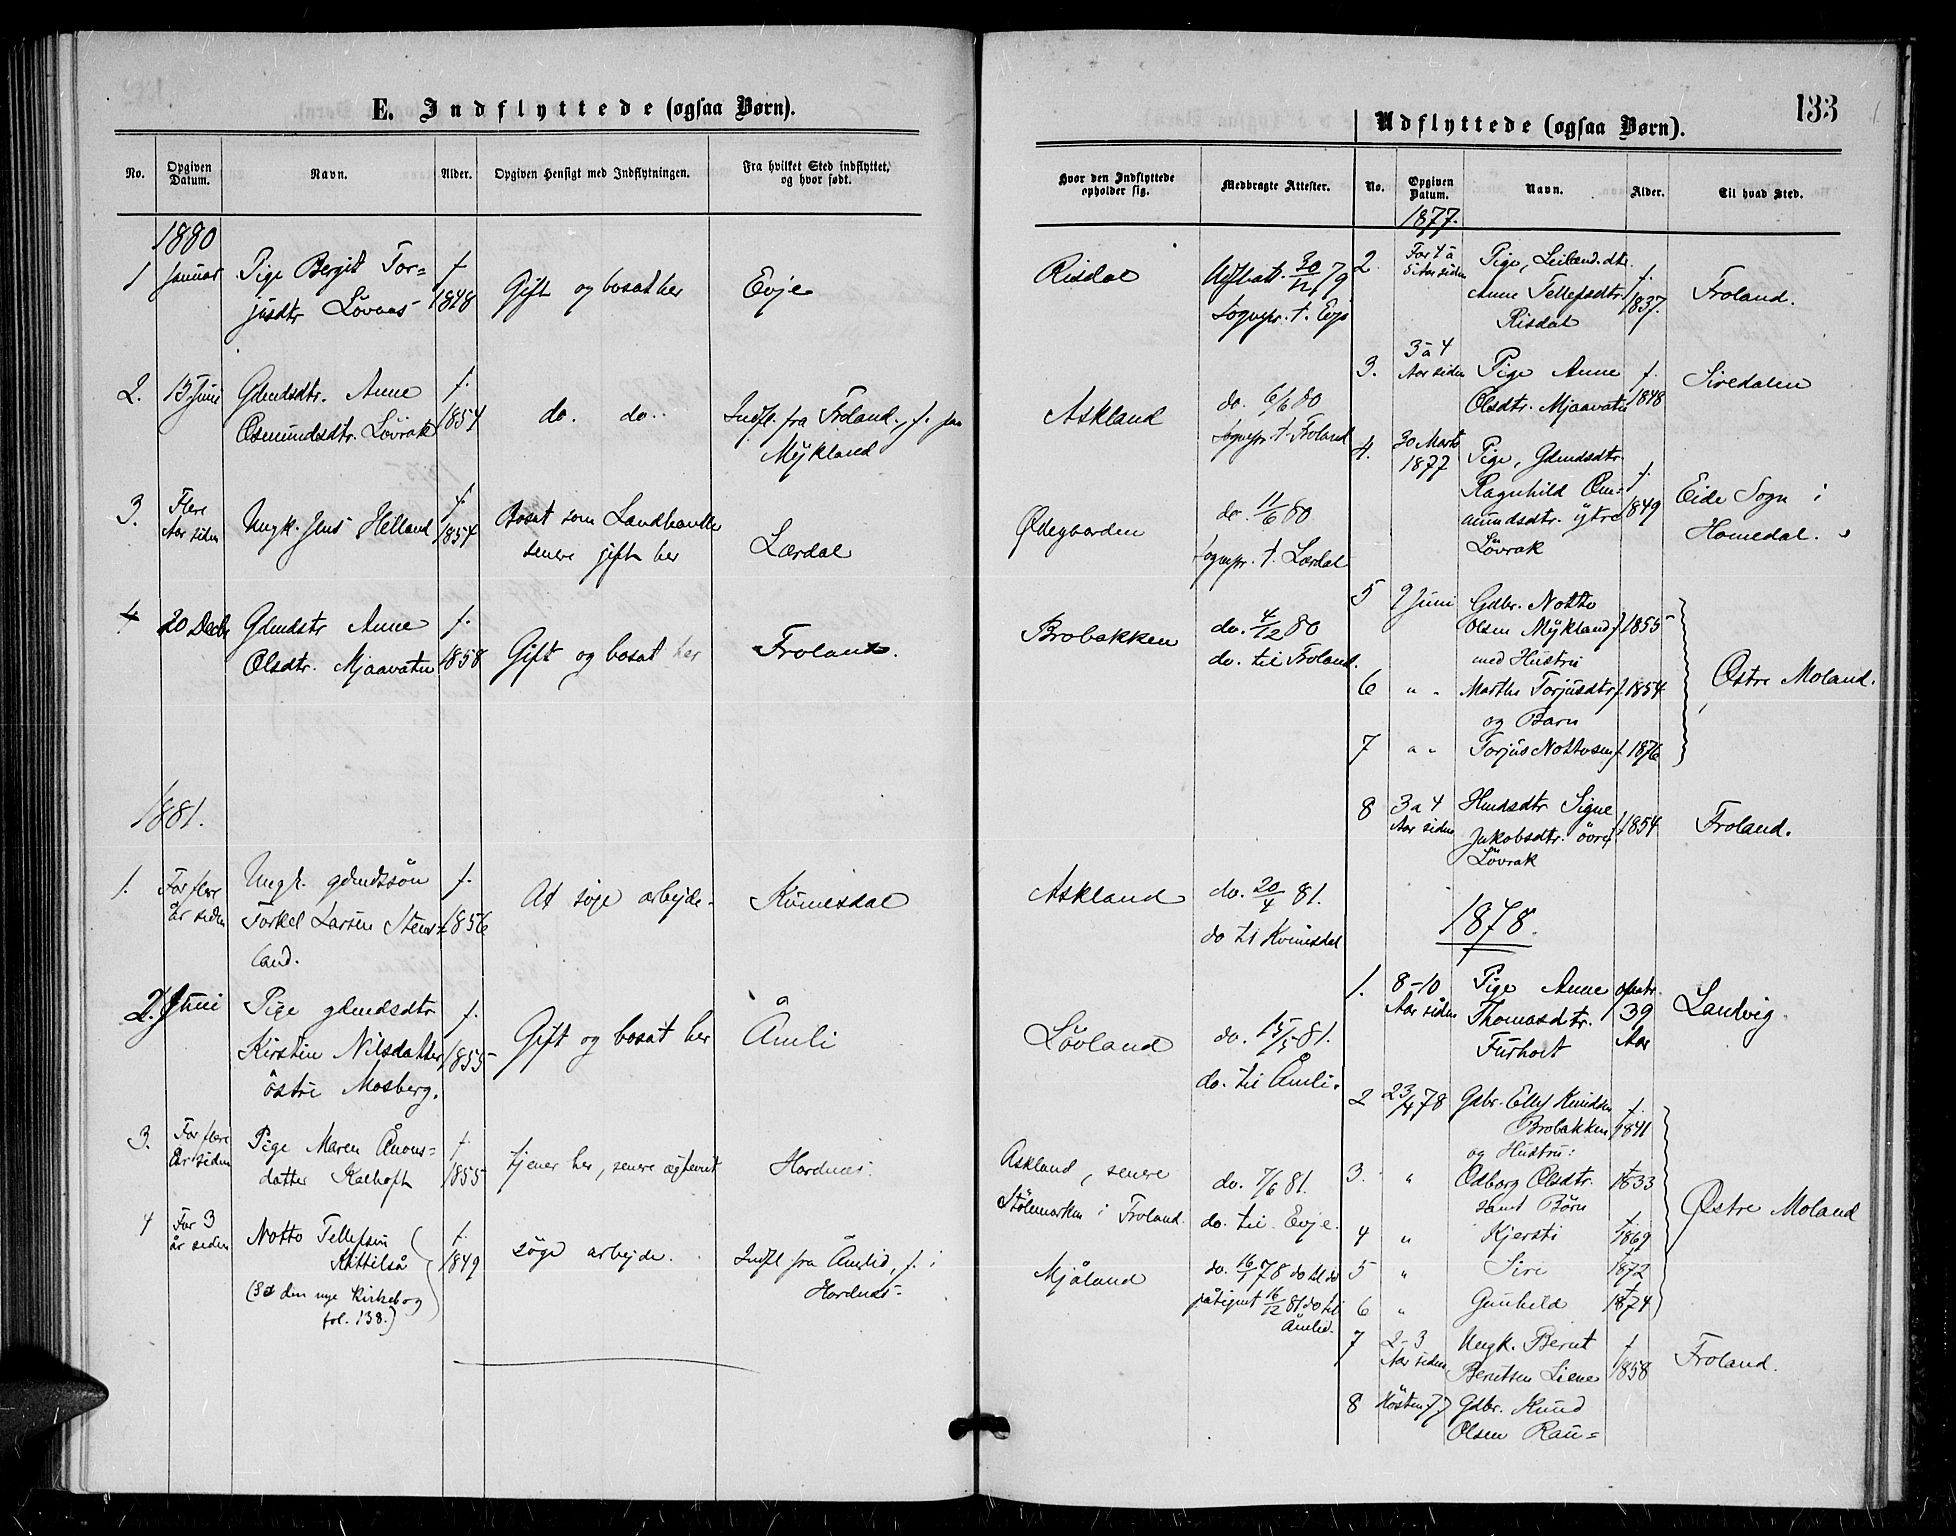 E. Indflyttede (ogsaa Børn).
No.
Opgiven
Datum.
Navn.
Alder.
Opgiven Hensigt med Indflytningen.
Fra hvilket Sted indflyttet,
og hvor født.
1880
1 Januar Pige Bergit Tor=
jusdtr Lövaas
f.
1848
Gift og bosat her
Evje
2. 13 Juni Gdmdsdtr. Anne
Osmundsdtr. Lövrak
f.
1854
do. do.
Indfl. fra Froland, f. paa
Mykland
3. Flere
Aar siden
Ungk. Jens Helland
f.
1854
Bosat som Landhandler
senere gift her
Lærdal
4 20 Decbr Gdmdstr Anne
Olsdtr. Mjaavatn
f.
1858
Gift og bosat her
Froland.
1881.
1. For flere
år siden
Ungk. gdmdssön
Torkel Larsen Stens=
land.
f.
1856
At söge arbejde.
Kvinesdal
2. Juni Pige gdmdsdtr
Kirstin Nilsdatter
östre Mosberg.
f.
1855
Gift og bosat her
Åmli
3. For flere
år siden
Pige Maren Ånons=
datter Kalhoft
f.
1855
tjener her, senere ægteviet
Hordnæs.
4 For 3
år siden
Notto Tellefsen
Kittilså
(Se den nye Kirkebog
fol. 138.)
f.
1849
söge arbejde.
Indfl fra Åmlid, f. i
Hordnæs
133
Udflyttede (ogsaa Børn).
Hvor den Indflyttede
opholder sig.
Medbragte Attester.
No.
Opgiven
Datum.
Navn.
Alder.
Til hvad Sted.
Risdal
Udflatt. 30/12 79
Sognepr. t. Evje
Askland
do. 6/6 80
Sognepr. t. Froland
Ødegaarden
do. 11/6 80
Sognepr. t. Lærdal
Brobakken
do. 4/12 80
do. til Froland.
Askland
do. 20/4 81.
do til Kvinesdal
Lövland
do. 15/5 81.
do. til Åmli.
Askland, senere
Stölemarken i Froland.
do. 7/6 81.
do. til Evje.
Mjåland
do. 16/1 78 do til do
påtegnet 16/12 81 do til
Åmlid.
1877.
2. For 4 à
5 Aar siden
Pige, Leilænd.dtr.
Anne Tellefsdtr.
Risdal
f.
1837.
Froland.
3. 3 à 4
Aar siden
Pige Anne
Olsdtr. Mjaavatn
f.
1848
Siredalen
4. 30 Marts
1877
Pige, Gdmdsdtr
Ragnhild Om=
mundsdtr. ytre
Lövrak
f.
1849
Eide Sogn i
Homedal.
5 9 Juni Gdbr. Notto
Olsen Mykland
med Hustru
f. 1855
6 " " Marthe Torjusdtr
og Barn
f. 1854
7 " " Torjus Nottosen
f. 1876
Østre Moland.
8 3 a 4
Aar siden
Hmdsdtr Signe
Jakobsdtr. övre
Lövrak
f. 1854
Froland.
1878.
1. 8-10
Aar siden
Pige Anne
Thomasdtr.
Furholt
39
Aar
Landvig.
2 23/4 78 Gdbr. Ellef Knudsen
Brobakken
og Hustru:
f.
1841
3. " Odborg Olsdtr.
samt Børn
f.
1833
4 " Kjersti
f.
1869
5 " Siri
f.
1872
6 " Gunhild
f.
1874
Østre Moland
7 2-3
Aar siden
Ungk. Bernt
Berntsen Liene
f.
1858
Froland.
8 Hösten 77 Gdbr. Knud
Olsen Rau=